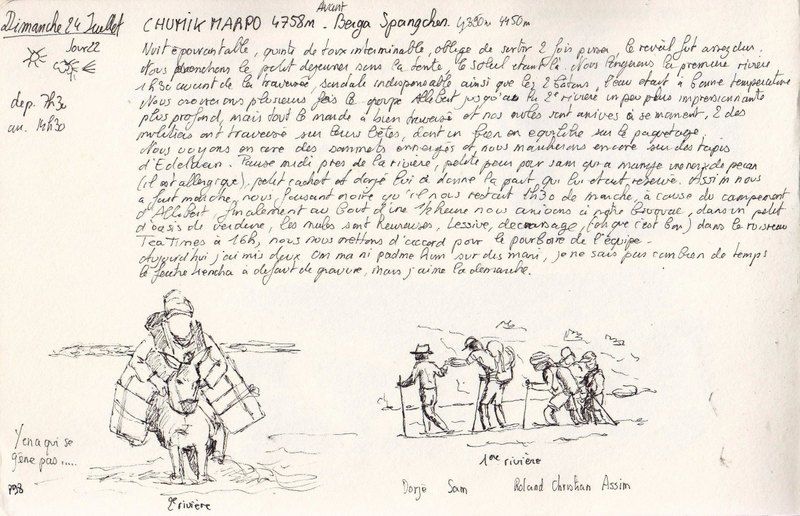 Dimanche 24 Juillet
Jour 22
dep. 7h30
arr. 14h30
Avant
CHUMIK MARPO 4758m. Berga Spangchen 4390m 4450m
Nuit épouvantable, quinte de toux interminable, obligé de sortir 2 fois pisser, le réveil fut assez dur.
Nous prenons le petit dejeuner sans la tente, le soleil étant là. Nous longerons la première rivière
1h30 avant de la traverser, sandale indispensable ainsi que les 2 batons, l'eau etait à bonne température
Nous croiserons plusieurs fois le groupe Allibert jusqu'au la 2e rivière un peu plus impressionnante
plus profond, mais tout le monde à bien traversé et nos mules sont arrivées à ce moment, 2 des
muletiers ont traversé sur leurs bêtes, dont un bien en equilibre sur le paquetage.
Nous voyons encore des sommets enneigés et nous marcherons encore sur des tapis
d'Edelweiss. Pause midi près de la rivière, petite peur pour Sam qui a mangé une noix de pecan
(il est allergique), petit cachet et Dorjé lui a donné la part qui lui etait réservé. Assim nous
a fait marcher, nous faisant croire qu'il nous restait 1h30 de marche à cause du campement
d'Allibert, finalement au bout d'une 1/2 heure nous arrivons à notre bivouac, dans un petit
d'oasis de verdure, les mules sont heureuses, Lessive, decrassage, (oh que c'est bon) dans le ruisseau
Tea Times à 16h, nous nous mettons d'accord pour le pourboire de l'équipe.
Aujourd'hui j'ai mis deux Om ma ni padme hum sur des mani, je ne sais pas combien de temps
le feutre tiendra à défaut de gravure, mais j'aime la démarche.
Y en a qui se
gêne pas.....
798
2e rivière
1ere rivière
Dorjé Sam Roland Christian Assim